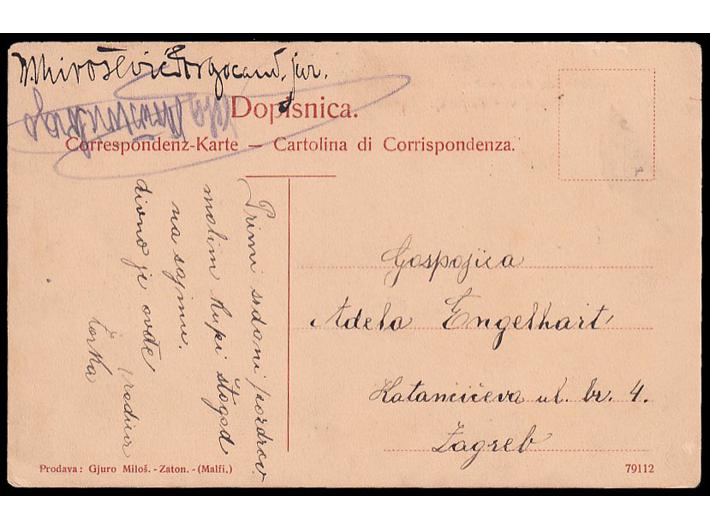 Dopisnica.
Correspondenz-Karte — Cartolina di Corrispondenza.
Primi srdani pozdrov
molim kupi štogod
na sajmu.
divno je ovde
Zorka
Gospojica
Adela Engelhart
Katančićeva ul. br. 4.
Zagreb
Prodava: Gjuro Miloš. - Zaton. - (Malfi.)
79112